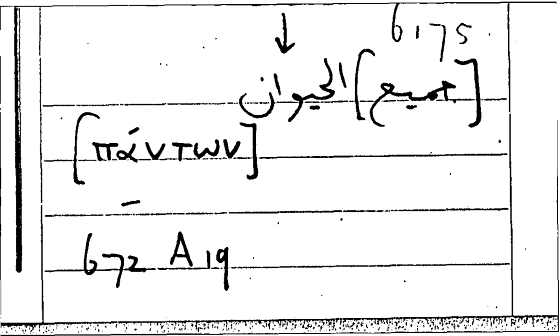 6175
↓
[جميع] الحيوان
[πάντων]
–
672 A 19